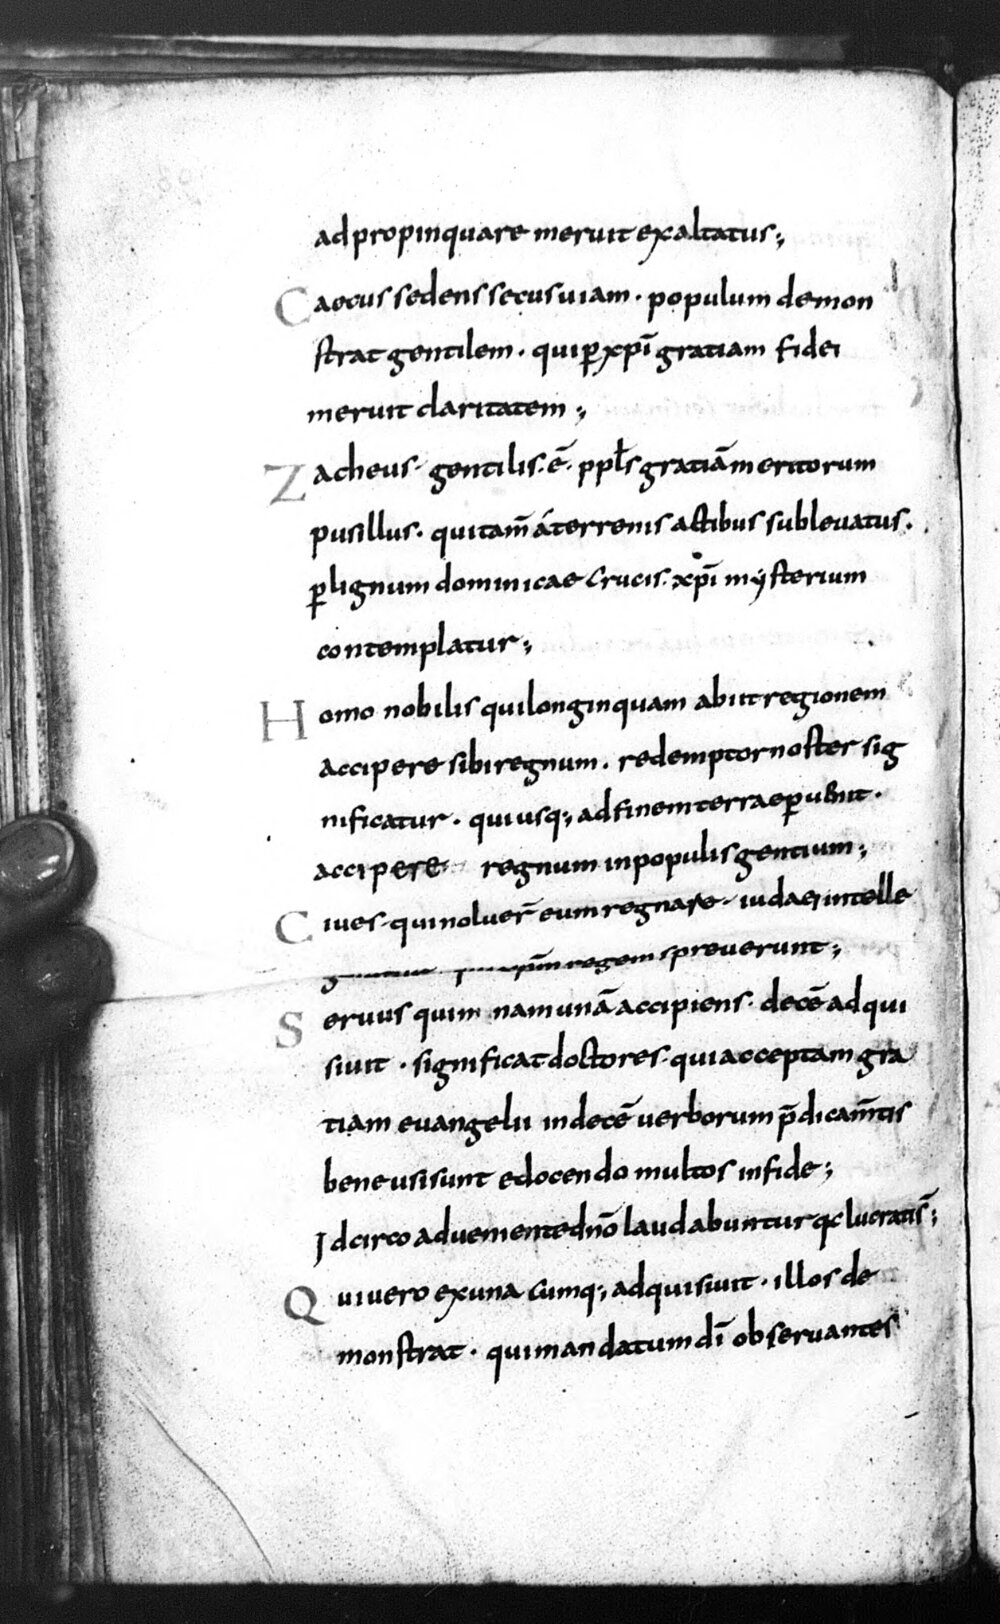 adpropinquare meruit exaltatus;
Caecus sedens secus uiam · populum demon
strat gentilem · qui p̲ xp̄i gratiam fidei
meruit claritatem;
Zacheus · gentilis · ē · ppl̄s gratiā meritorum
pusillus · qui tam̄ á terrenis actibus sublevatus ·
p̲ lignum dominicae crucis · xp̄i mẏsterium
contemplatur;
Homo nobilis qui longinquam abiit regionem
accipere sibi regnum · redemptor noster sig
nificatur · qui usq; ad finem terrae
accipere regnum in populis gentium;
Cives · qui noluer̄ eum regnare · iudaei intelle
regem spreverunt;
Seruus qui mnam unā accipiens · decē adqui
siuit · significat doctores · qui acceptam gra
tiam euangelii in decē uerborum p̄dicam̄tis
bene usi sunt edocendo multos in fide;
Idcirco adueniente dn̄o laudabuntur lucratis̄;
Qui uero ex una cumq; adquisiuit · illos de
monstrat · qui mandatum dī obseruantes